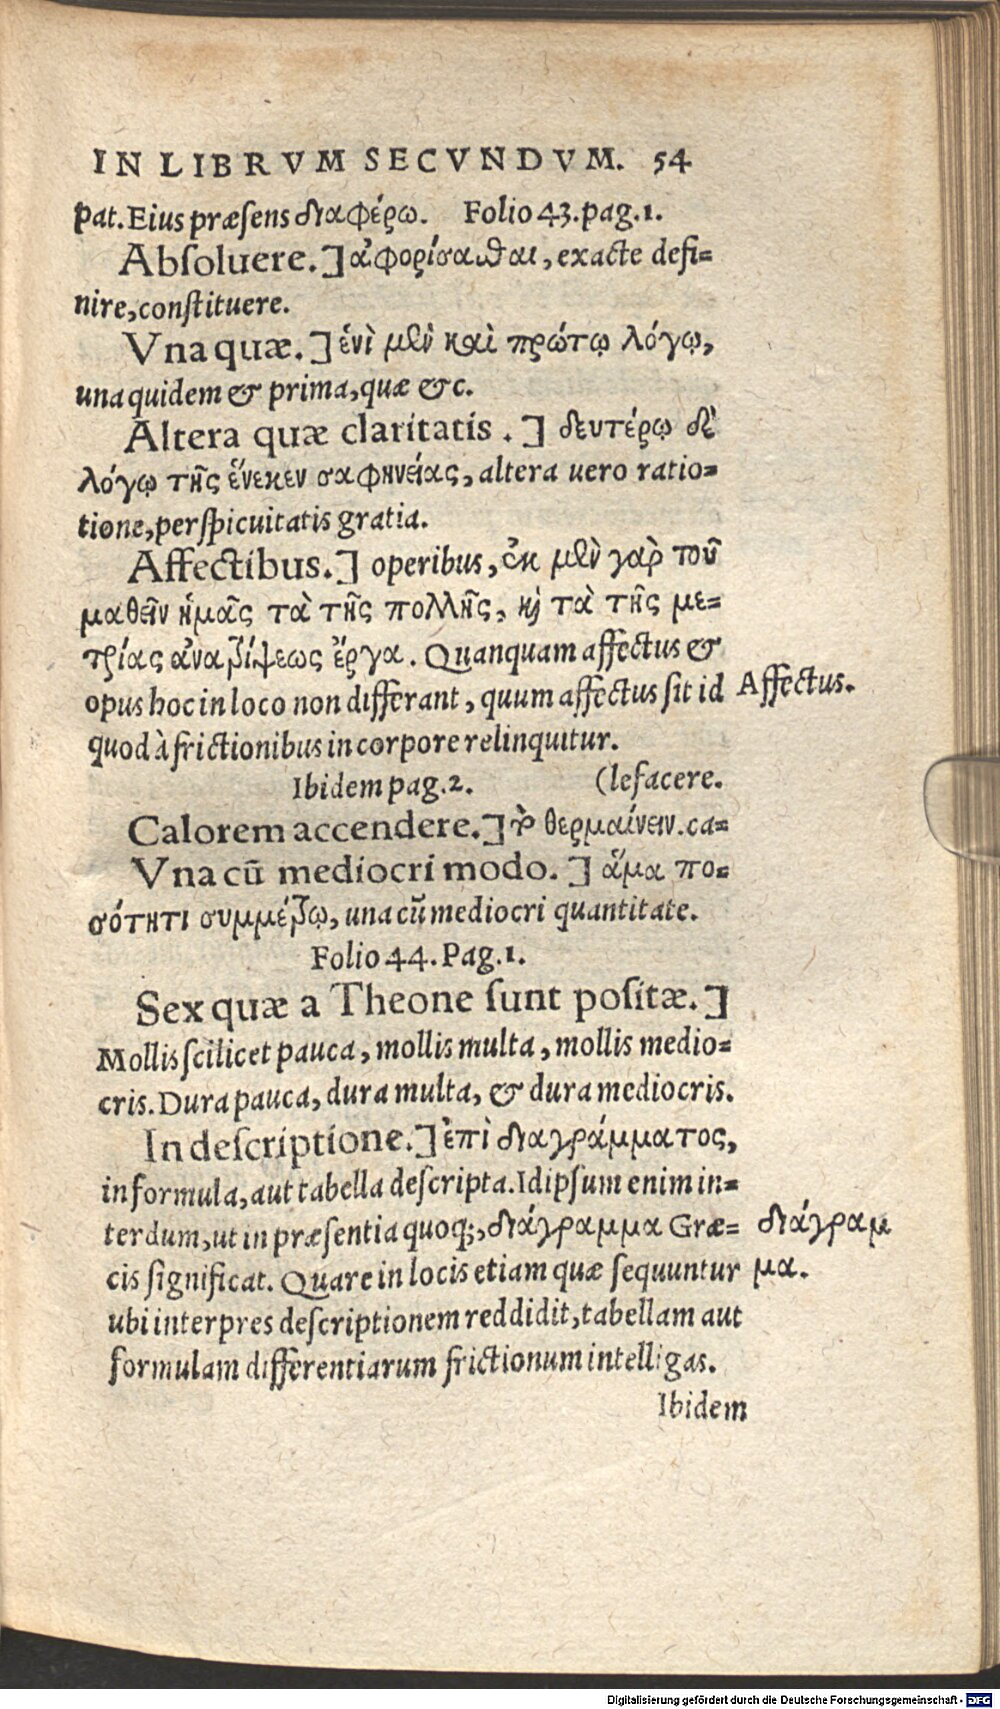 IN LIBRVM SECVNDVM. 54
pat. Eius præsens διαφέρω. Folio 43. pag. 1.
Absoluere.] ἀφορίσασθαι, exacte defi-
nire, constituere.
Vna quæ.] ἑνὶ μὲν καὶ πρώτῳ λόγῳ,
una quidem & prima, quæ &c.
Altera quæ claritatis.] δευτέρῳ δὲ
λόγῳ τῆς ἕνεκεν σαφηνείας, altera uero ratio-
tione, perspicuitatis gratia.
Affectibus.] operibus, ἐκ μὲν γὰρ τοῦ
μαθεῖν ἡμᾶς τὰ τῆς πολλῆς, καὶ τὰ τῆς με-
τρίας ἀνατρίψεως ἔργα. Quanquam affectus &
opus hoc in loco non differant, quum affectus sit id
Affectus.
quod à frictionibus in corpore relinquitur.
Ibidem pag. 2. (lefacere.
Calorem accendere.] τὸ θερμαίνειν. ca-
Vna cū mediocri modo.] ἅμα πο-
σότητι συμμέτρῳ, una cū mediocri quantitate.
Folio 44. Pag. 1.
Sex quæ a Theone sunt positæ.]
Mollis scilicet pauca, mollis multa, mollis medio-
cris. Dura pauca, dura multa, & dura mediocris.
In descriptione.] ἐπὶ διαγράμματος,
in formula, aut tabella descripta. Idipsum enim in-
terdum, ut in præsentia quoq;, διάγραμμα Græ-
διάγραμ
cis significat. Quare in locis etiam quæ sequuntur
μα.
ubi interpres descriptionem reddidit, tabellam aut
formulam differentiarum frictionum intelligas.
Ibidem
Digitalisierung gefördert durch die Deutsche Forschungsgemeinschaft - DFG